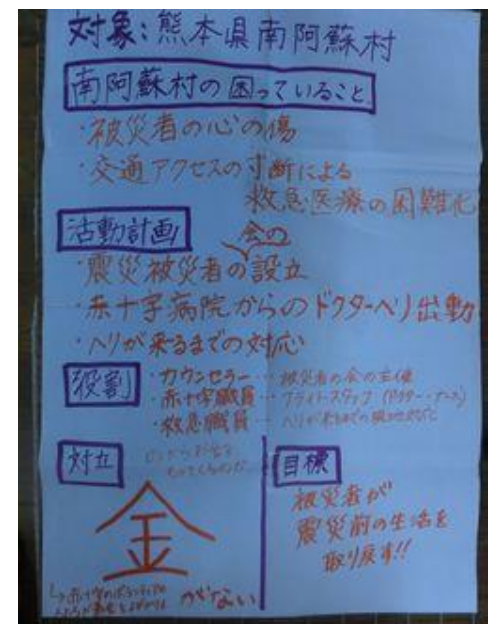 対象：熊本県南阿蘇村
南阿蘇村の困っていること
・被災者の心の傷
・交通アクセスの寸断による
救急医療の困難化
活動計画
会の
・震災被災者の設立
・赤十字病院からのドクターヘリ出動
・ヘリが来るまでの対応
役割
・カウンセラー … 被災者の会の主催
・赤十字職員 … フライトスタッフ（ドクター・ナース）
・救急職員 … ヘリが来るまでの
対立
金
がない
目標
被災者が
震災前の生活を
取り戻す!!